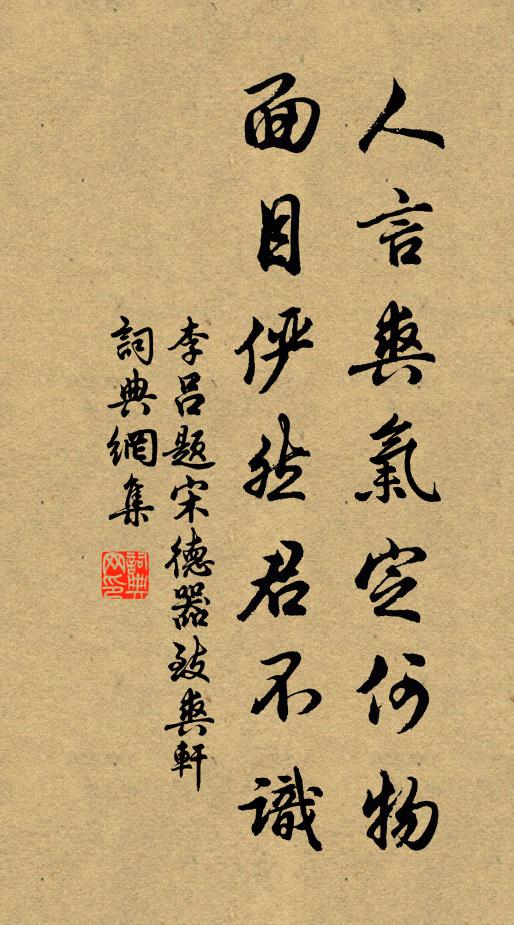 人言爽氣定何物
面目俨然君不識
李吕題宋德器致爽軒
詞典網集
詞典網印